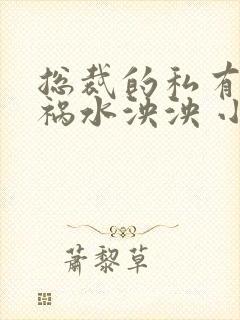 总裁的私有
祸水泱泱 小
萧黎草